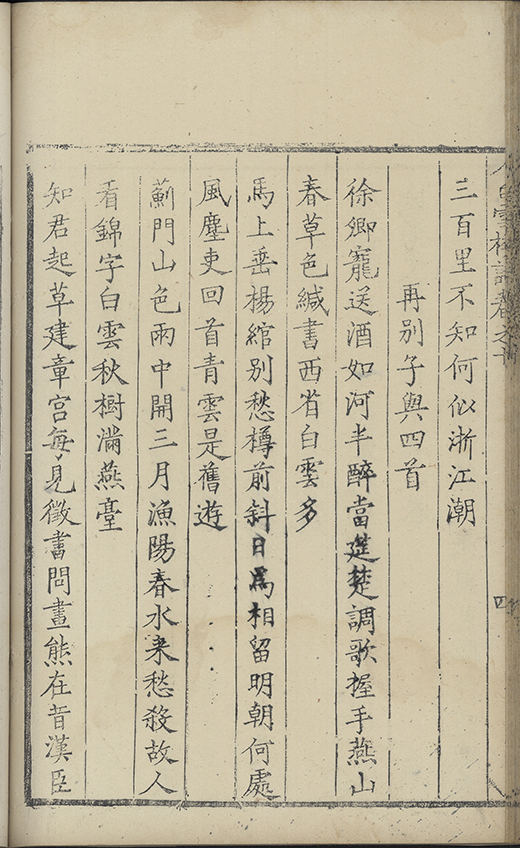 三百里不知何似浙江潮
再別子與四首
徐卿寵送酒如河半醉當筵楚調歌握手燕山
春草色緘書西省白雲多
馬上垂楊綰別愁樽前斜日爲相留明朝何處
風塵吏回首青雲是舊遊
薊門山色雨中開三月漁陽春水来愁殺故人
看錦字白雲秋樹滿燕臺
知君起草建章宮每見徵書問畫熊在昔漢臣